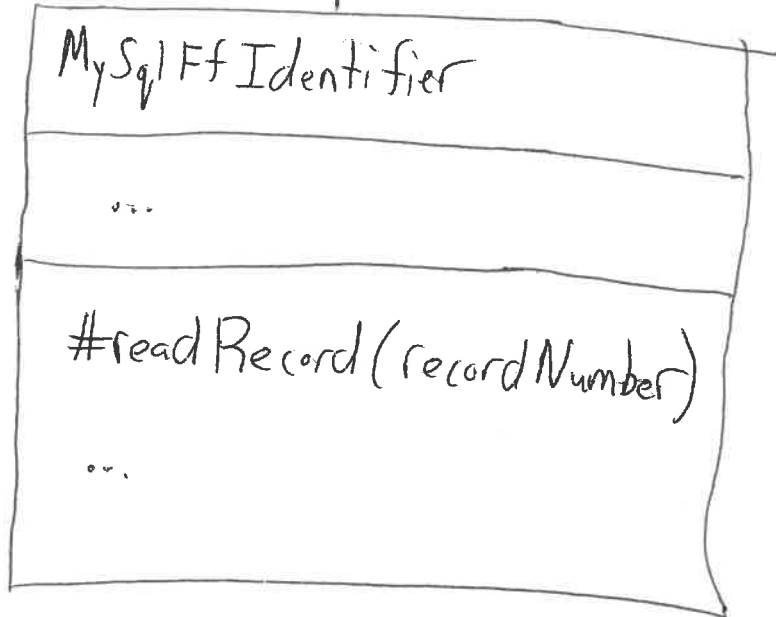 MySqlFfIdentifier
...
#readRecord(recordNumber)
...